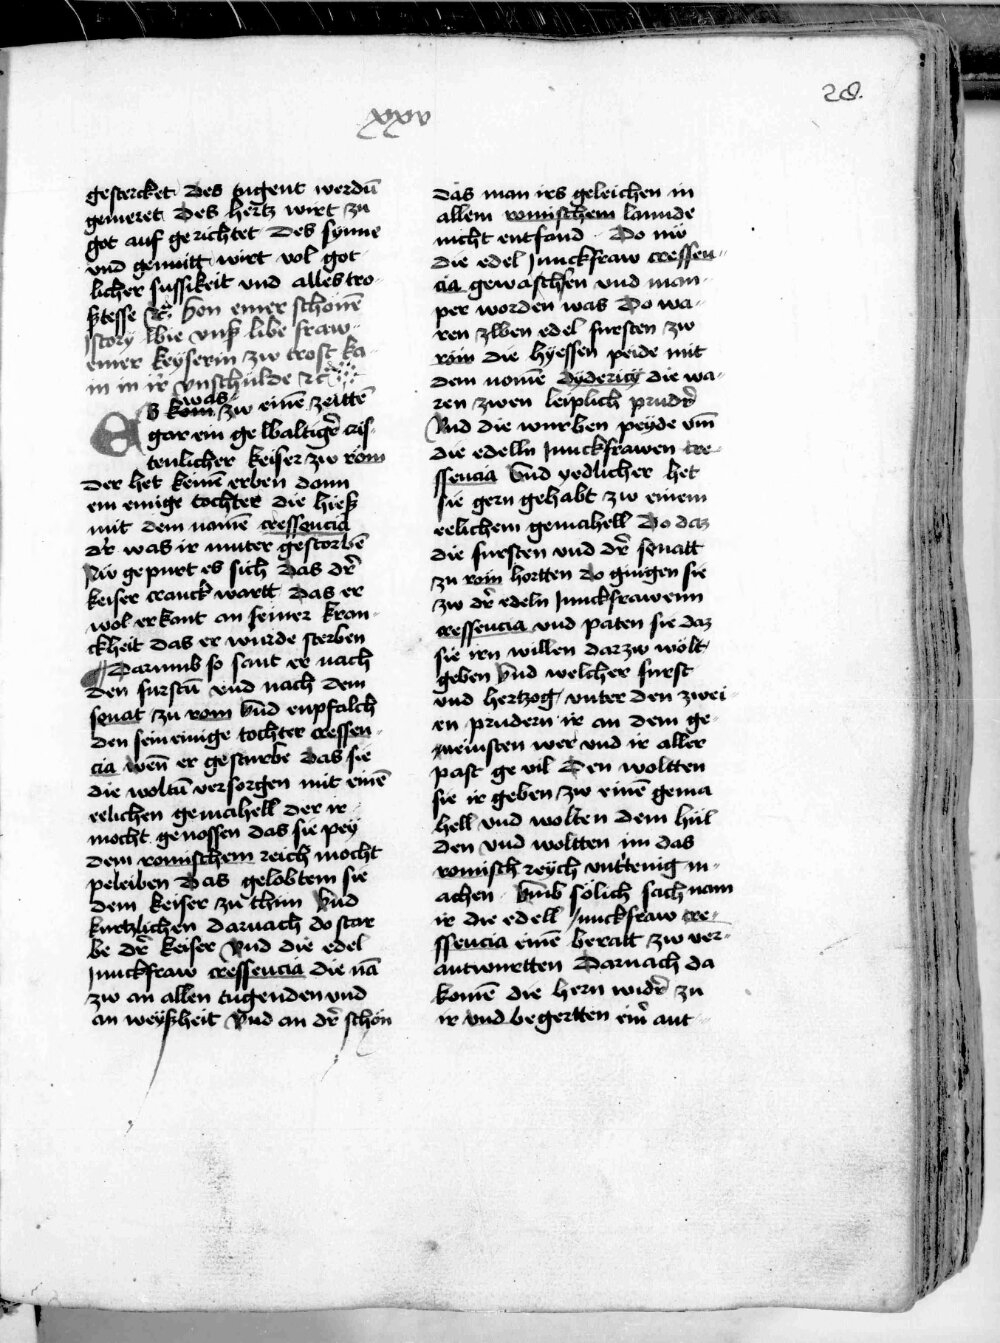 28.
xxv
gestercket Des tugent werdn̄
gemeret Des hertz wirt zu
got auf gerichtet Des synne
vnd gemutt wirt vol got
licher sussikeit vnd alles tro-
stes
Von einer schonē
story Wie vnß libe fraw
einer keyserin zw trost ka-
m in ir vnschulde ⁊c
was
Es kom zw einē zeittē
gar ein ge waltigr̄ cris-
tenlicher keiser zw rom
Der het keinē erben dann
ein einige tochter die hieß
mit dem namē cressencia
dr̄ was ir muter gestorbē
Nw gepurt es sich das dr̄
keiser cranck wartt Das er
wol erkant an seiner kran-
ckheit das er wurde sterben
Darumb so sant er nach
den furstn̄ vnd nach dem
senat zu rom vnd enpfalch
den sein einige tochter cressen-
cia wen̄ er gesturbe Das sie
die woltn̄ versorgen mit einē
eelichen gemahell Der ir
mocht genossen das sie pey
dem romischem reich mocht
peleiben Das gelobtem sie
dem keiser zu thun Vnd
kurtzlichen darnach do star
be dr̄ keiser Vnd die edel
Junckfraw cressencia die nā
zw an allen tugenden vnd
an weyßheit Vnd an dr̄ schon
das man irs geleichen in
allem romischem lannde
nicht entfand Do nw
die edel Junckfraw cressen-
cia gewaschsen vnd man-
per worden was Do wa-
ren zwen edel fursten zw
rom die hyessen peide mit
dem namē dyderich die wa-
ren zwen leiplich prudr̄
Vnd die wurben peyde vm̄
die edelln Junckfrawen cre-
ssencia Vnd yedlicher het
sie gern gehabt zw einem
eelichem gemahell Do daz
die fursten vnd dr̄ senatt
zu rom hortten do gingen sie
zw dr̄ edeln Junckfrawenn
cressencia vnd paten sie daz
sie irn willen darzw wolt
geben Vnd welcher furst
vnd hertzog vnter den zwei-
en prudern ir an dem ge-
meinsten wer vnd ir aller
past ge vil Den woltten
sie ir geben zw einē gema
hell vnd wolten dem hul
den vnd woltten im das
romisch reych vnttenig m-
achen Vmb solich sach nam
ir die edell Junckfraw cre-
ssencia einē beratt zw ver-
antwurtten Darnach da
komē die hern widr̄ zu
ir vnd begertten eīr ant-